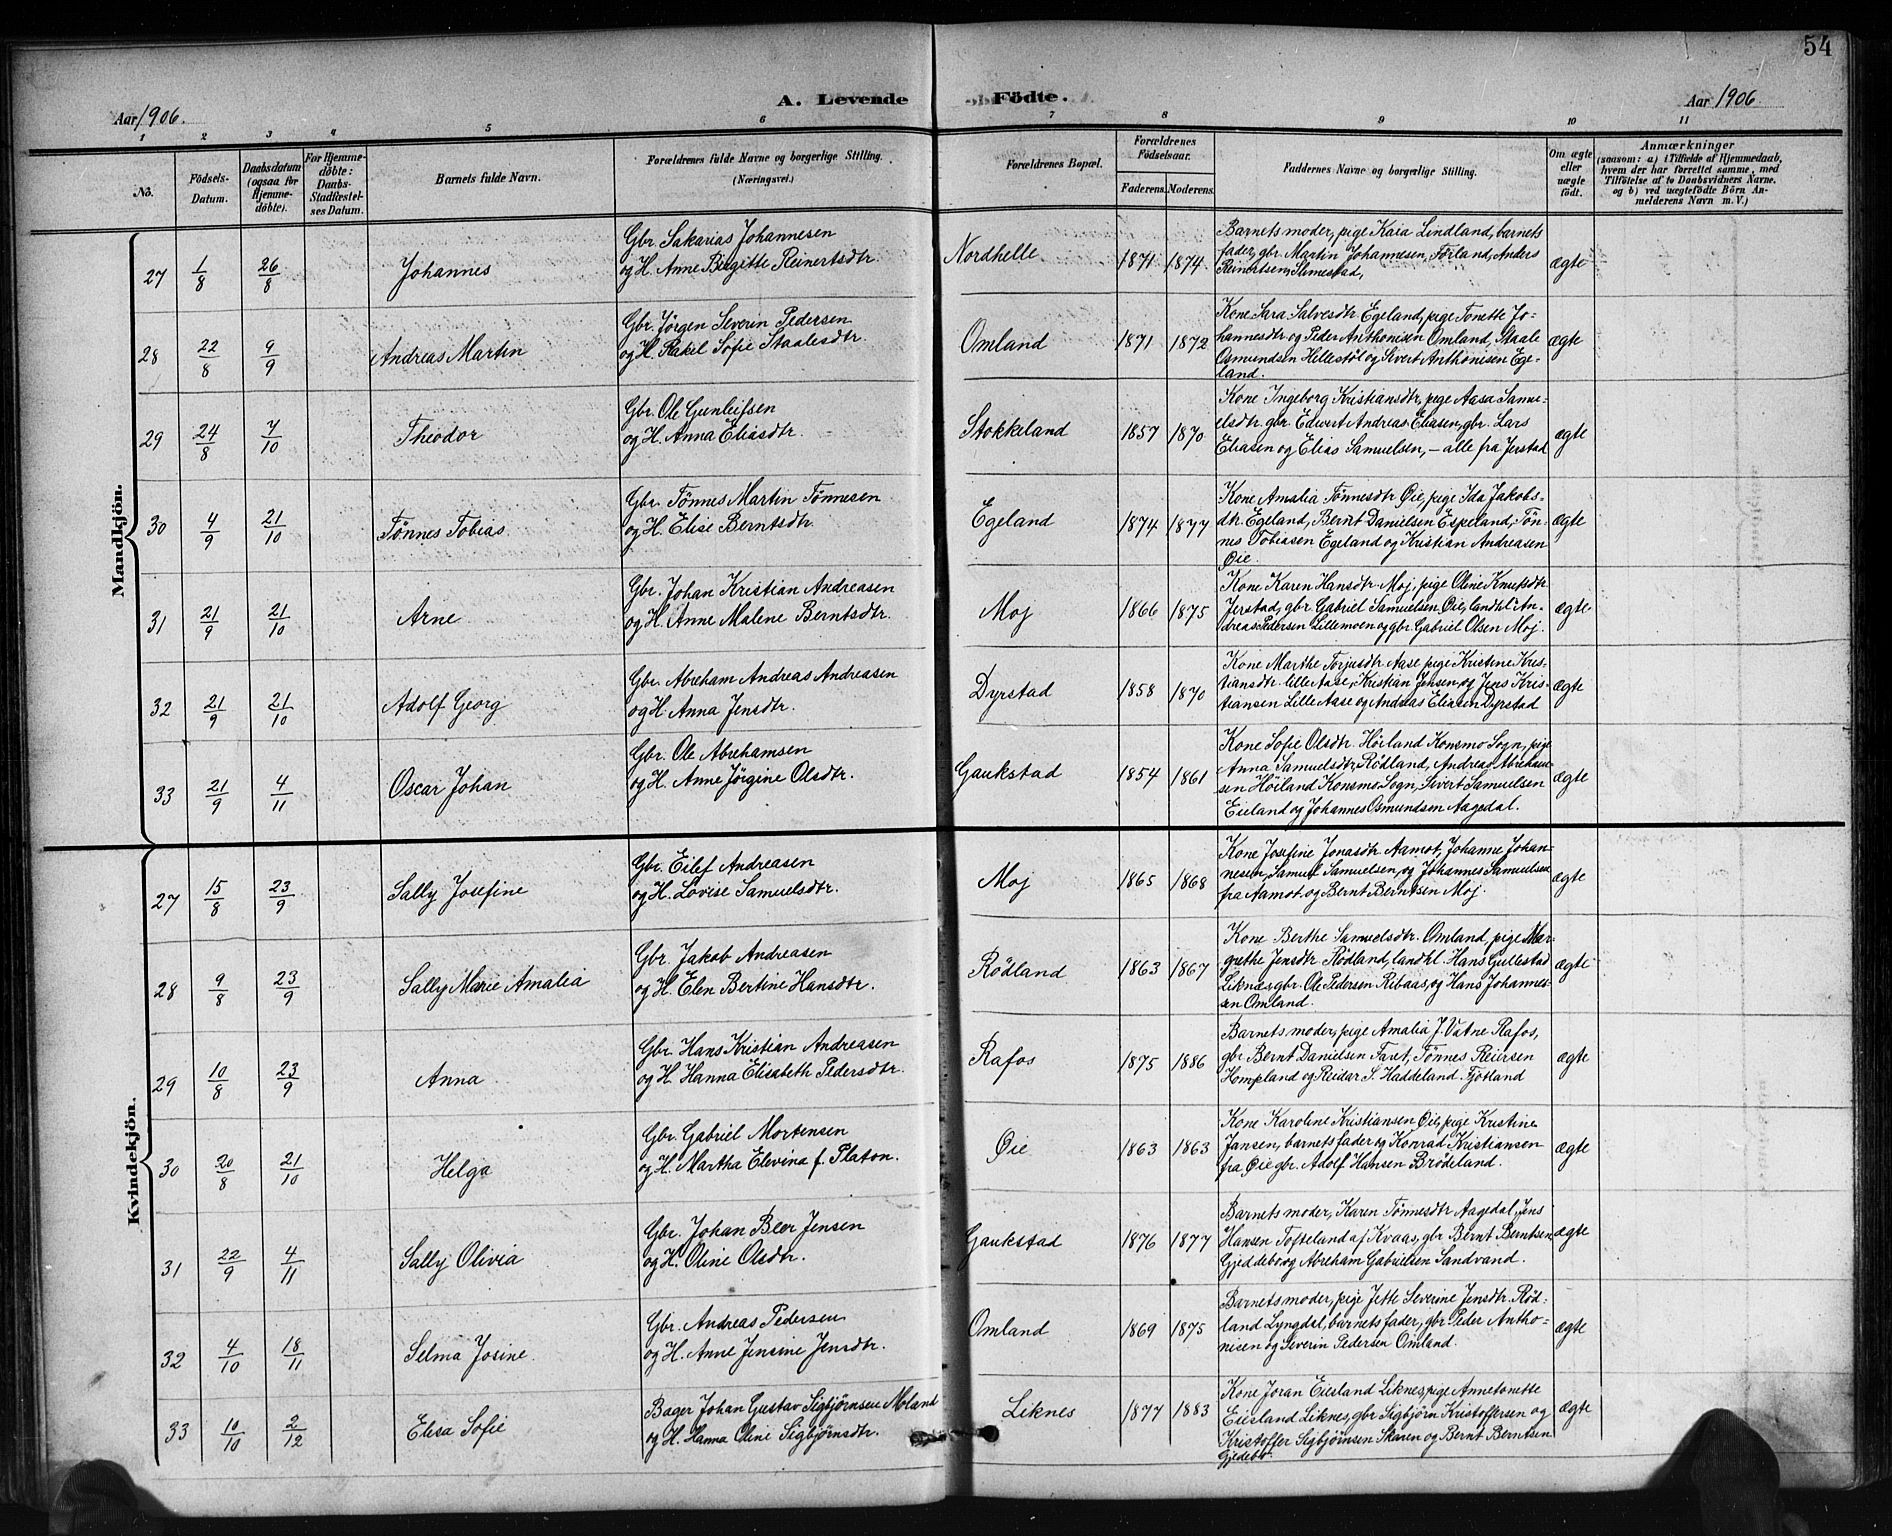 54
Aar 1906.
A. Levende Födte.
Aar 1906
1 2 3 4 5 6 7 8 9 10 11
No.
Födsels-Datum.
Daabsdatum (ogsaa for Hjemme-döbte).
For Hjemme-döbte: Daabs-Stadfæstel-ses Datum.
Barnets fulde Navn.
Forældrenes fulde Navne og borgerlige Stilling. (Næringsvei.)
Forældrenes Bopæl.
Forældrenes Födselsaar.
Faderens. Moderens.
Faddernes Navne og borgerlige Stilling.
Om ægte eller uægte födt.
Anmærkninger
(saasom: a) i Tilfælde af Hjemmedaab,
hvem der har forrettet samme, med
Tilföielse af to Daabsvidners Navne.
og b) ved uægtefödte Börn An-
melderens Navn m. V.)
Mandkjön.
27 1/8 26/8 Johannes
Gbr. Sakarias Johannesen
og H. Anne Birgitte Reinertsdtr
Nordhelle 1871 1874
Barnets moder, pige Kaia Lindland, barnets
fader, gbr. Martin Johannesen, Förland, Anders
Reinertsen, Slimestad,
ægte
28 22/8 9/9 Andreas Martin
Gbr. Jörgen Severin Pedersen
og H. Rakel Sofie Staalesdtr.
Omland 1871 1872
Kone Sara Salvesdtr Egeland, pige Tonette Jo-
hannesdtr og Peder Anthonisen Omland, Staale
Osmundsen Hillestöl og Sivert Anthonisen Ege-
land.
ægte
29 24/8 7/10 Theodor
Gbr. Ole Gunleifsen
og H. Anna Eliasdtr.
Stokkeland 1857 1870
Kone Ingeborg Kristiansdtr, pige Aasa Samu-
elsdtr. gbr. Edvert Andreas Eliasen, gbr. Lars
Eliasen og Elias Samuelsen, – alle fra Jerstad
ægte
30 4/9 21/10 Tønnes Tobias.
Gbr. Tønnes Martin Tønnesen
og H. Elise Berntsdtr
Egeland 1874 1877
Kone Amalia Tønnesdtr Øie, pige Ida Jakobs-
dtr. Egeland, Bernt Danielsen Espeland, Tøn-
nes Tobiasen Egeland og Kristian Andreasen
Øie.
ægte
31 21/9 21/10 Arne
Gbr. Johan Kristian Andreasen
og H. Anne Malene Berntsdtr.
Moj 1866 1875
Kone Karen Hansdtr. Moj, pige Oline Knutsdtr.
Jerstad, gbr. Gabriel Samuelsen, Øie, landhl. An-
dreas Pedersen Lillemoen og gbr. Gabriel Olsen Moj.
ægte
32 21/9 21/10 Adolf Georg
Gbr. Abreham Andreas Andreasen
og H. Anna Jensdtr.
Dyrstad 1858 1870
Kone Marthe Torjusdtr Aase, pige Kristine Kris-
tiansdtr lille Aase, Kristian Jensen, og Jens Kris-
tiansen Lille Aase og Andreas Eliasen Dyrstad
ægte
33 21/9 4/11 Oscar Johan
Gbr. Ole Abrehamsen
og H. Anne Jörgine Olsdtr.
Gaukstad 1854 1861
Kone Sofie Olsdtr. Höiland Konsmo Sogn, pige
Anna Samuelsdtr, Rödland, Andreas Abreham-
sen Höiland Konsmo Sogn, Sivert Samuelsen
Eieland og Johannes Osmundsen Aagedal.
ægte
Kvindekjön.
27 15/8 23/9 Sally Josefine
Gbr. Eilef Andreasen
og H. Lovise Samuelsdtr.
Moj 1865 1868
Kone Josefine Jonasdtr Aamot, Johanne Johan-
nesen, Samuel Samuelsen, og Johannes Samuelsen
fra Aamot. og Bernt Berntsen Moj.
ægte
28 9/8 23/9 Sally Marie Amalia
Gbr. Jakob Andreasen
og H. Elen Bertine Hansdtr.
Rödland 1863 1867
Kone Berthe Samuelsdtr. Omland, pige Mar-
grethe Jensdtr Rödland, landhl. Hans Gullestad
Liknes, gbr. Ole Pedersen Ribaas, og Hans Johannes-
sen Omland.
ægte
29 10/8 23/9 Anna
Gbr. Hans Kristian Andreasen
og H. Hanna Elisabeth Pedersdtr.
Rafos 1875 1886
Barnets moder, pige Amalia J. Vatne Rafos,
gbr. Bernt Danielsen Faret, Tönnes Reiersen
Hompland og Reidar S. Haddeland. Fjotland
ægte
30 20/8 21/10 Helga
Gbr. Gabriel Mortensen
og H. Martha Elevina f. Platon.
Øie 1863 1863
Kone Karoline Kristiansen Øie, pige Kristine
Jansen, barnets fader og Konrad Kristiansen
fra Øie gbr. Adolf Hansen Brödeland.
ægte
31 22/9 4/11 Sally Olivia
Gbr. Johan Beer Jensen
og H. Oline Olsdtr.
Gaukstad 1876 1877
Barnets moder, Karen Tönnesdtr Aagedal, Jens
Hansen Tofteland af Kvaas, gbr Bernt Berntsen
Gjeddebo og Abreham Gabrielsen Sandvand.
ægte
32 4/10 18/11 Selma Josine.
Gbr. Andreas Pedersen
og H. Anne Jensine Jensdtr.
Omland 1869 1875
Barnets moder, pige Jette Severine Jensdtr. Röd-
land Lyngdal, barnets fader, gbr Peder Antho-
nisen og Severin Pedersen Omland.
ægte
33 10/10 2/12 Elisa Sofie
Bager Johan Gustav Sigbjørnsen Moland
og H. Hanna Oline Sigbjørnsdtr.
Liknes 1877 1883
Kone Joran Eiesland Liknes, pige Annetonette
Eiesland Liknes, gbr Sigbjörn Kristoffersen og
Kristoffer Sigbjörnsen Skaren og Bernt Berntsen
Gjedebo.
ægte